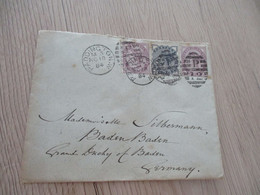 Mademoiselle Silbermann
Baden Baden
Grand Duchy of Baden
Germany.